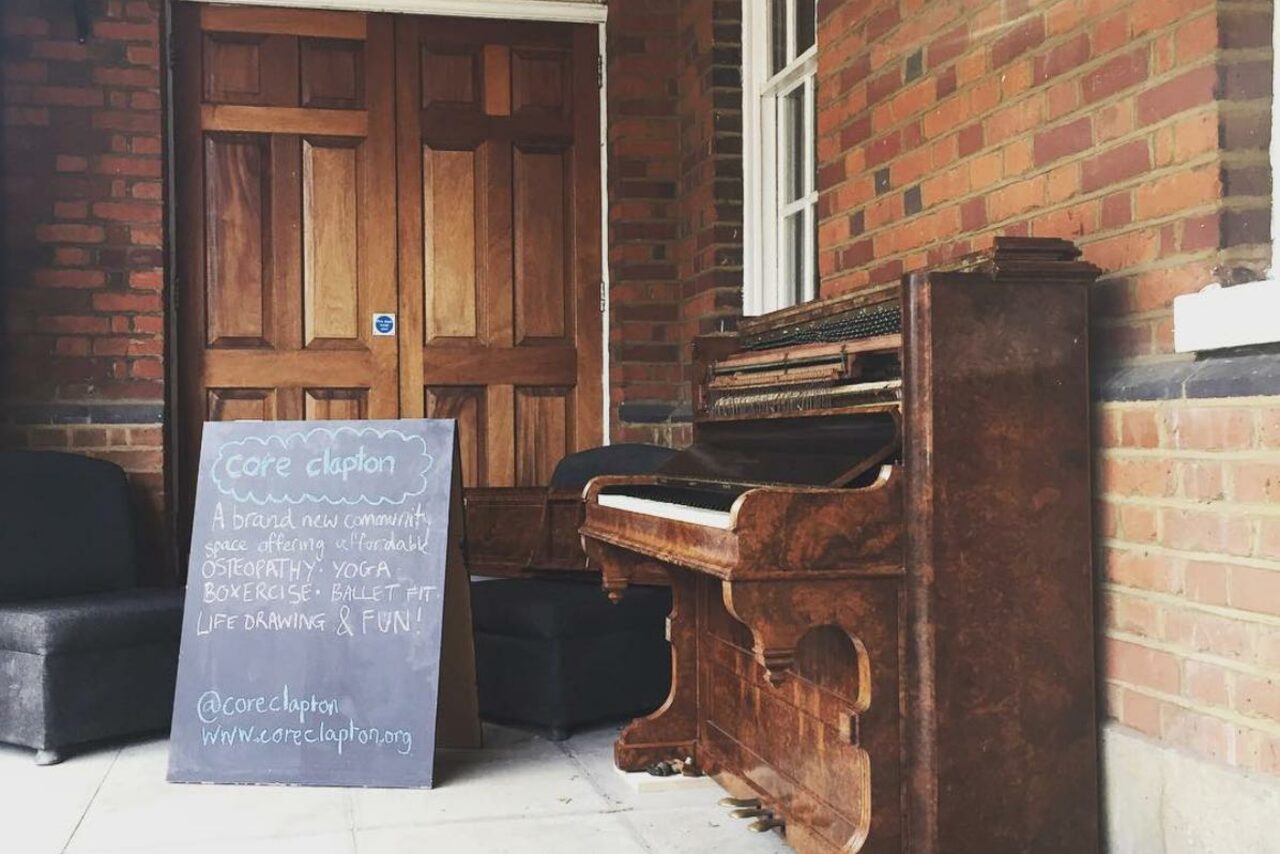 core clapton
A brand new community
space offering affordable
OSTEOPATHY· YOGA
BOXERCISE· BALLET FIT
LIFE DRAWING & FUN!
@coreclapton
www.coreclapton.org